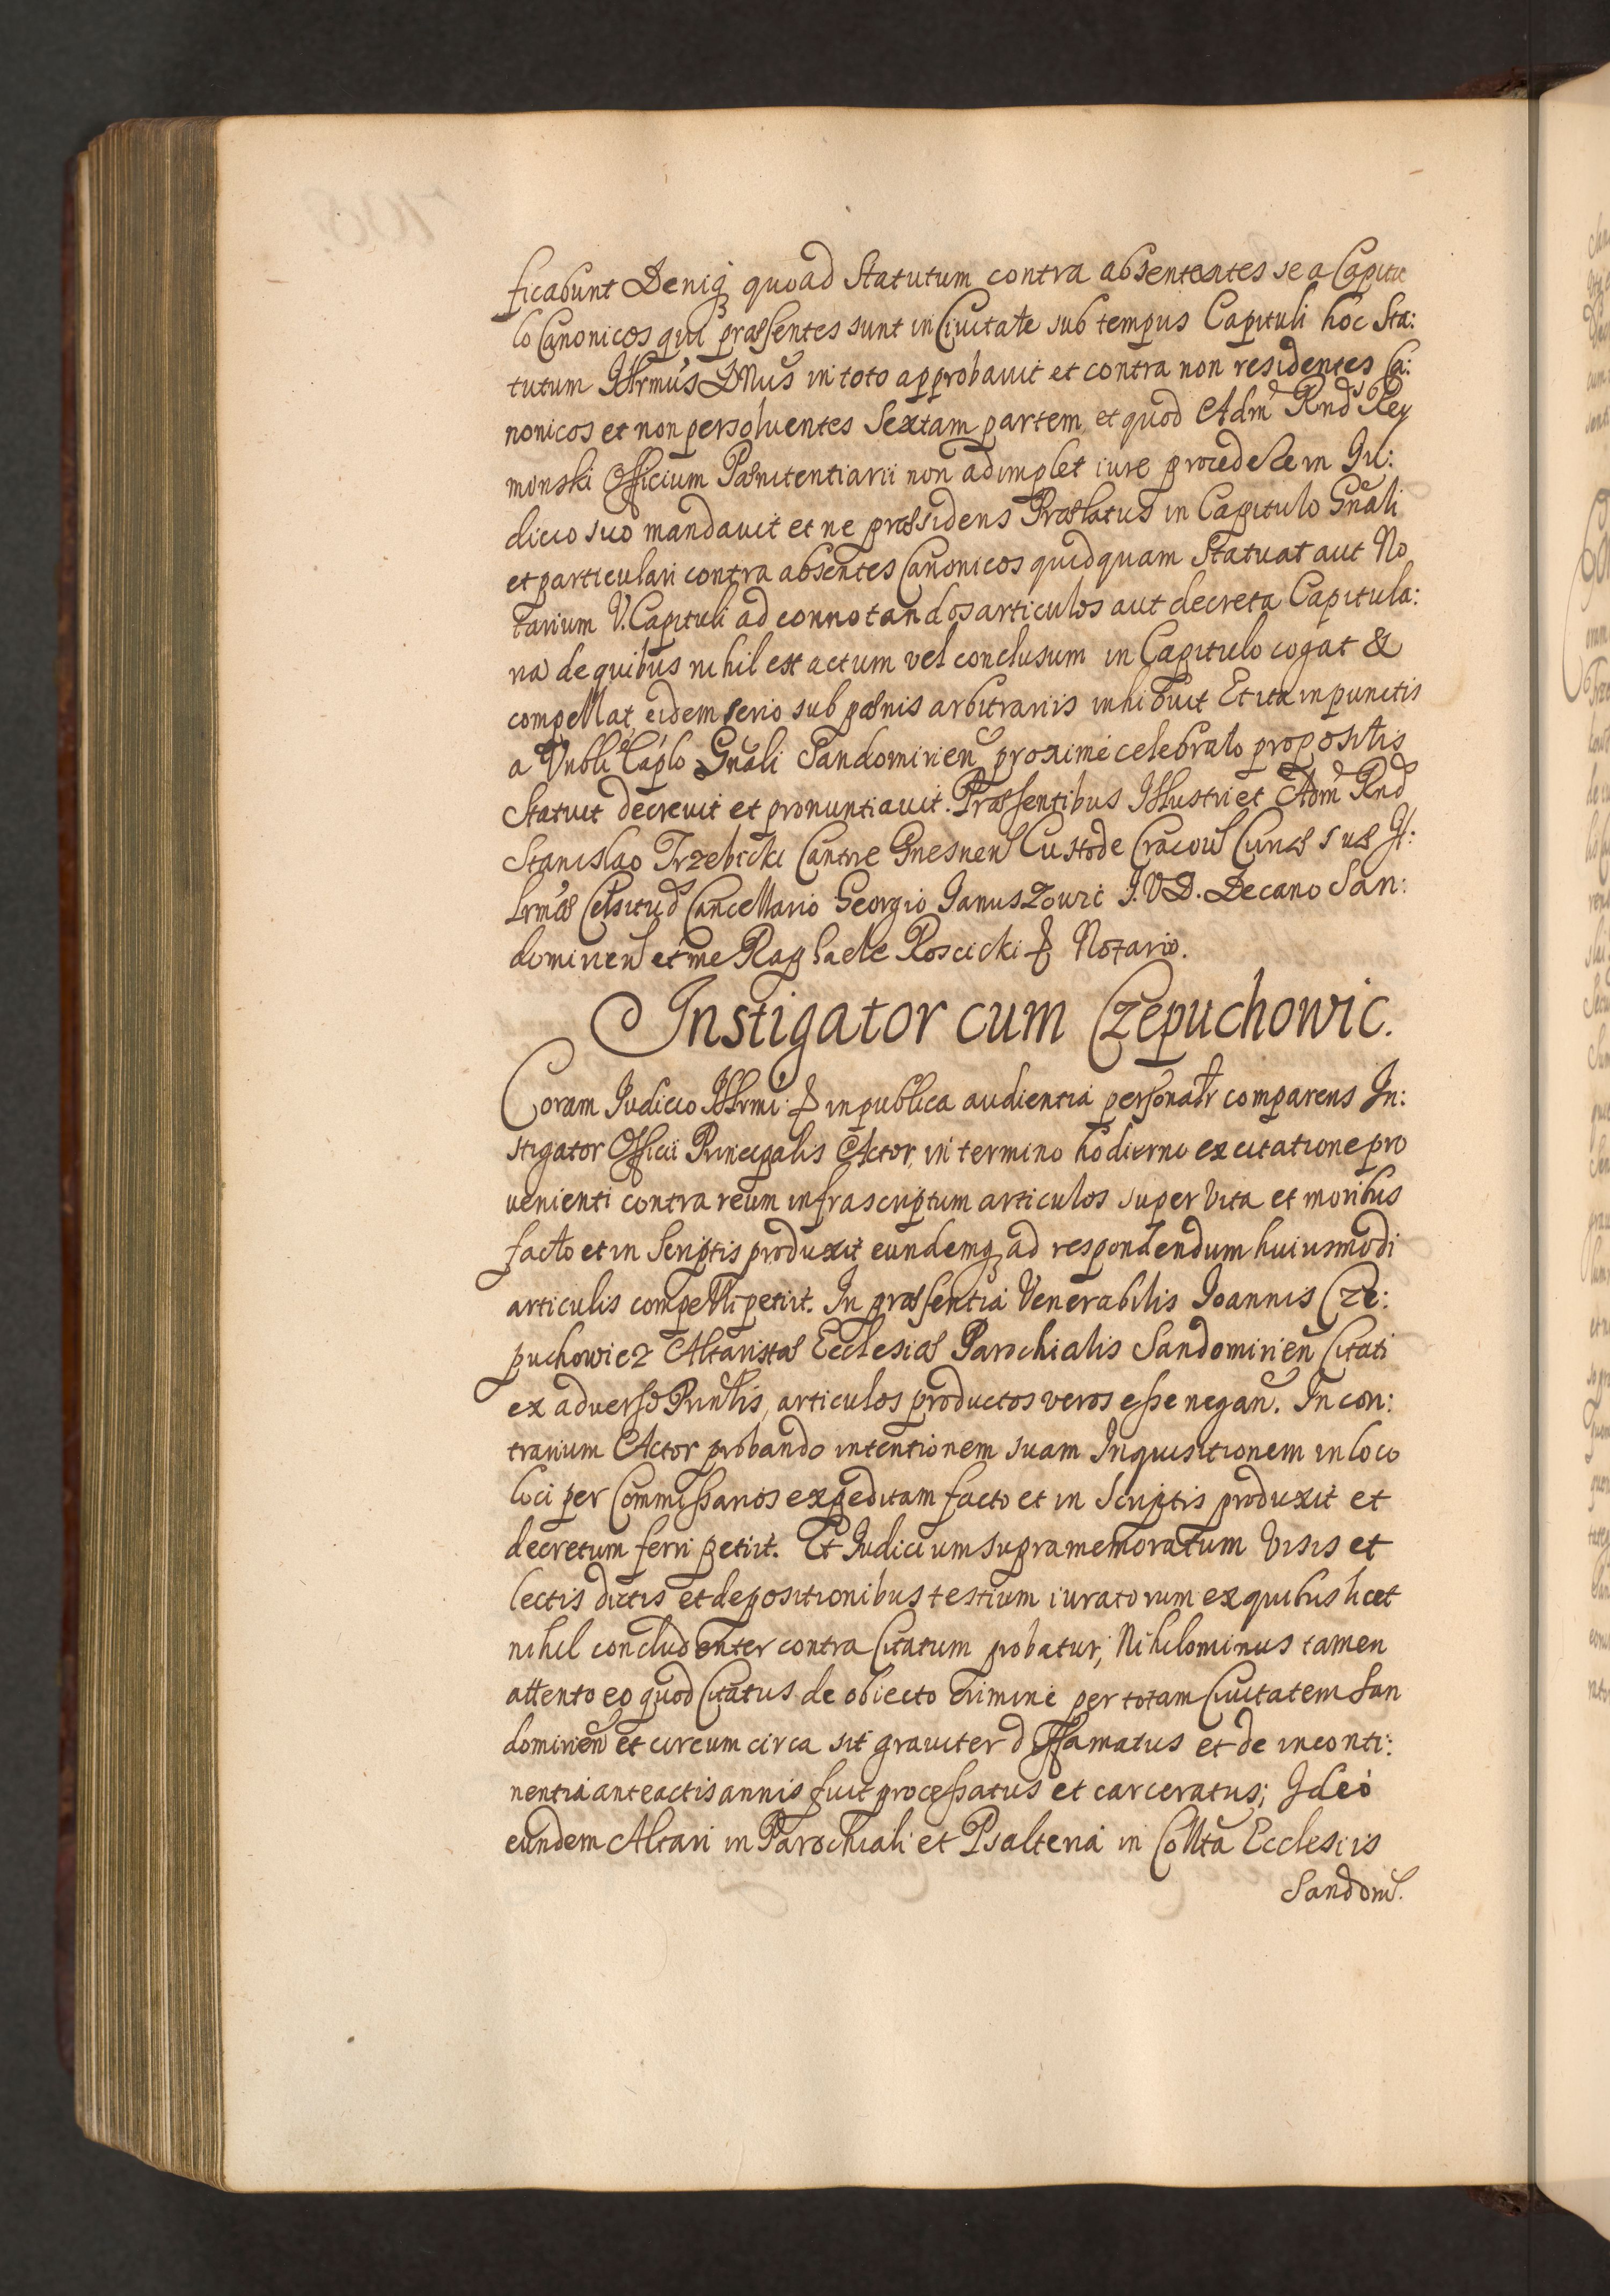 ficabunt Deniq3 quoad Statutum contra absentantes se a Capitu
lo Canonicos qui præsentes sunt in Civitate sub tempus Capituli hoc Sta:
tutum Illrmus DNus in toto approbavit et contra non residentes Ca:
nonicos et non persoluentes Sextam partem, et quod Adm Rnds Rey
monski Officium Pœnitentiarii non adimplet iure procedere in Iu:
dicio suo mandavit et ne præsidens Prælatus in Capitulo Gnãli
et particulari contra absentes Canonicos quidquam Statuat aut No
tarium V. Capituli ad connotandos articulos aut decreta Capitula:
ria de quibus nihil est actum vel conclusum in Capitulo cogat &
compellat, eidem serio sub pœnis arbitrariis inhibuit Et ita in punctis
a Vnbli Caplo Gnãli Sandomirien proximè celebrato propositis
Statuit decrevit et pronuntiavit. Præsentibus Illustri et Adm Rnd
Stanislao Trzebicki Cantore Gnesnen Custode Cracou Curiæ suæ Il:
lrmæ Celsitud Cancellario Georgio Ianuszowic I.V.D. Decano San:
domirien et me Raphaele Roscicki & Notario.
Instigator cum Czepuchowic.
Coram Iudicio Illrmi & in publica audientia personalr comparens In:
stigator Officii Principalis Actor, in termino hodierno ex citatione pro
uenienti contra reum infrascriptum articulos super vita et moribus
facto et in Scriptis produxit eundemq3 ad respondendum huiusmodi
articulis compelli petiit. In præsentia Venerabilis Ioannis Cze:
puchowicz Altaristæ Ecclesiæ Parochialis Sandomirien Citati
ex adverso Prinlis, articulos productos veros esse negan. In con:
trarium Actor probando intentionem suam Inquisitionem in loco
loci per Commissarios expeditam facto et in Scriptis produxit et
decretum ferri petiit. Et Iudicium supramemoratum visis et
lectis dictis et depositionibus testium iuratorum ex quibus licet
nihil concludenter contra Citatum probatur; Nihilominus tamen
attento eo quod Citatus de obiecto crimine per totam Civitatem San
domirien et circum circa sit graviter diffamatus et de inconti:
nentia anteactis annis fuit processatus et carceratus; Ideò
eundem Altari in Parochiali et Psalteria in Collta Ecclesiis
Sandom.